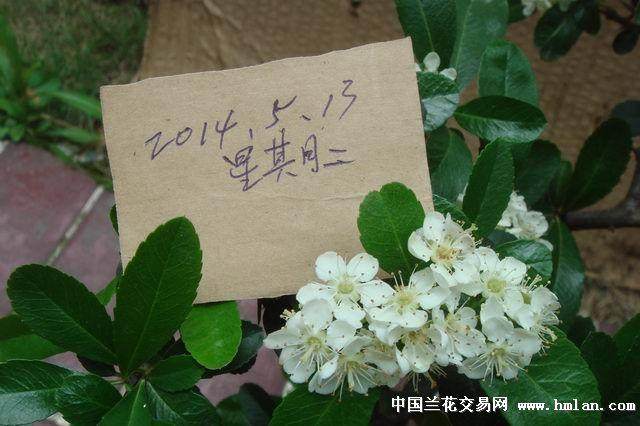 2014.5.13
星其月二
中国兰花交易网 www.hmlan.com